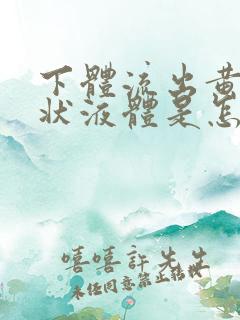 下體流出黃
狀液體是怎
嘻嘻許先生
未任同意禁止轉載